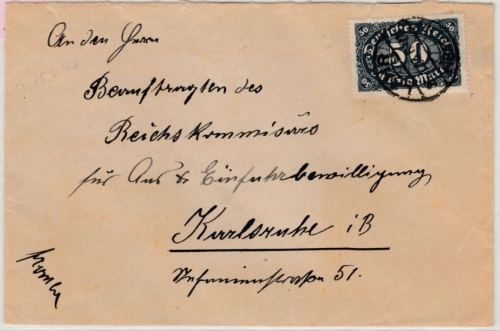 An den Herrn
Beauftragten des
Reichskommisärs
für Aus & Einfuhrbewilligung
Karlsruhe i B
Stefanienstraße 51.
Deutsches Reich
50
50
50